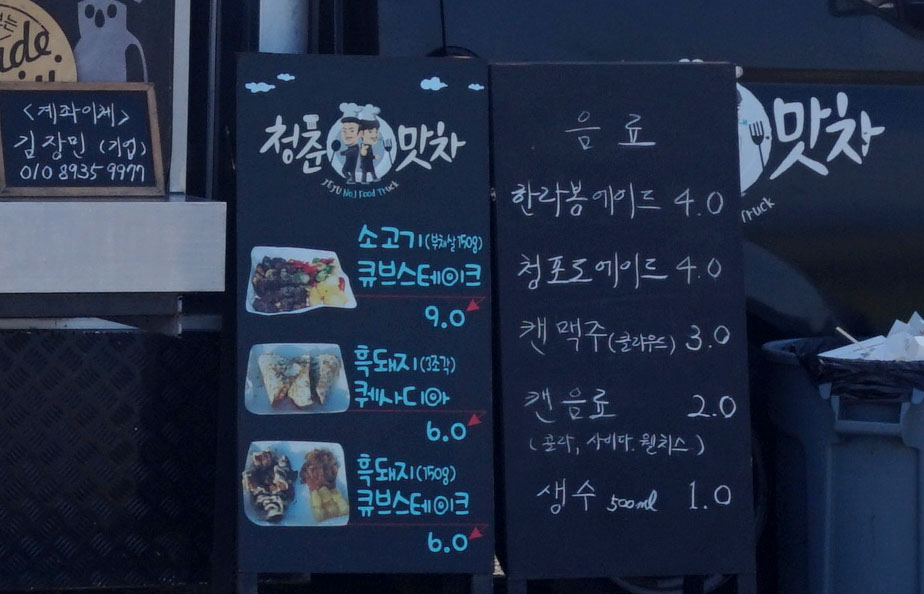 <계좌이체>
김장민 (기업)
010 8935 9977
청춘 맛차
JEJU No.1 Food Truck
소고기(부채살150g)
큐브스테이크
9.0
흑돼지(3조각)
퀘사디아
6.0
흑돼지(150g)
큐브스테이크
6.0
음료
한라봉에이드 4.0
청포도에이드 4.0
캔맥주(클라우드) 3.0
캔음료 2.0
(콜라, 사이다. 웰치스)
생수 500ml 1.0
맛차
Truck